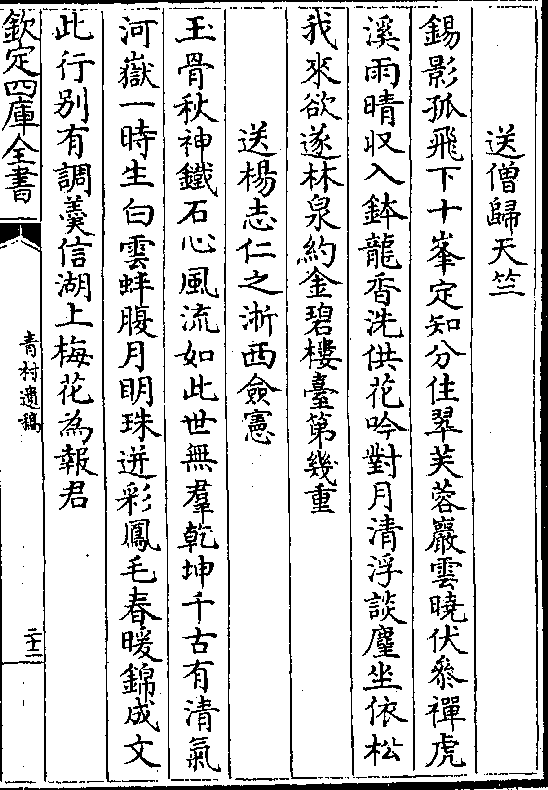 送僧歸天竺
錫影孤飛下十峯定知分住翠芙蓉巖雲曉伏參禪虎
溪雨晴収入鉢龍香洗供花吟對月清浮談麈坐依松
我來欲遂林泉約金碧樓臺第幾重
送楊志仁之浙西僉憲
玉骨秋神鐵石心風流如此世無羣乾坤千古有清氣
河嶽一時生白雲蚌腹月明珠迸彩鳳毛春暖錦成文
此行别有調羹信湖上梅花為報君
欽定四庫全書
青村遺稿
二十二